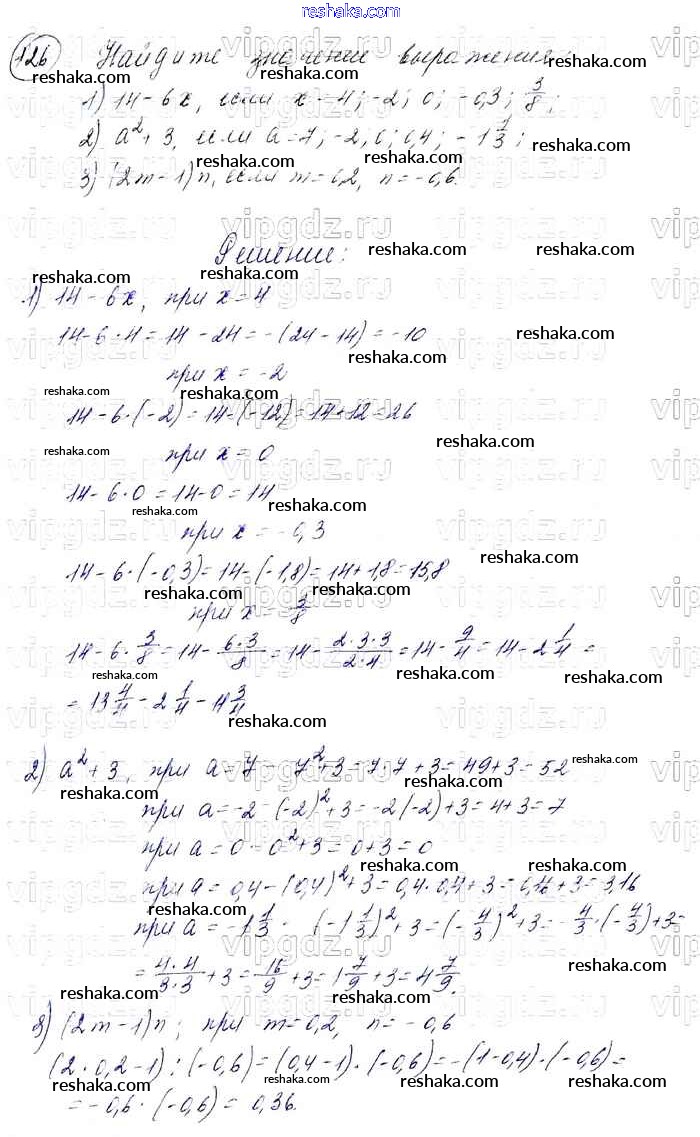 reshaka.com
126 Найдите значение выражения:
1) 14 - 6x, если x = 4; -2; 0; -0,3; 3/8;
2) a² + 3, если a = 7; -2; 0; 0,4; -1 1/3;
3) (2m - 1)n, если m = 0,2, n = -0,6.
Решение:
1) 14 - 6x, при x = 4
14 - 6 · 4 = 14 - 24 = -(24 - 14) = -10
при x = -2
14 - 6 · (-2) = 14 - (-12) = 14 + 12 = 26
при x = 0
14 - 6 · 0 = 14 - 0 = 14
при x = -0,3
14 - 6 · (-0,3) = 14 - (-1,8) = 14 + 1,8 = 15,8
при x = 3/8
14 - 6 · 3/8 = 14 - 6·3/8 = 14 - 2·3·3/2·4 = 14 - 9/4 = 14 - 2 1/4 =
= 13 4/4 - 2 1/4 - 11 3/4
2) a² + 3, при a = 7 - 7² + 3 = 7 · 7 + 3 = 49 + 3 = 52
при a = -2 - (-2)² + 3 = -2(-2) + 3 = 4 + 3 = 7
при a = 0 - 0² + 3 = 0 + 3 = 0
при a = 0,4 - (0,4)² + 3 = 0,4 · 0,4 + 3 = 0,16 + 3 = 3,16
при a = -1 1/3 - (-1 1/3)² + 3 = (-4/3)² + 3 = -4/3 · (-4/3) + 3 =
= 4·4/3·3 + 3 = 16/9 + 3 = 1 7/9 + 3 = 4 7/9.
3) (2m - 1)n; при m = 0,2, n = -0,6
(2 · 0,2 - 1) · (-0,6) = (0,4 - 1) · (-0,6) = -(1 - 0,4) · (-0,6) =
= -0,6 · (-0,6) = 0,36.
reshaka.com
vipgdz.ru